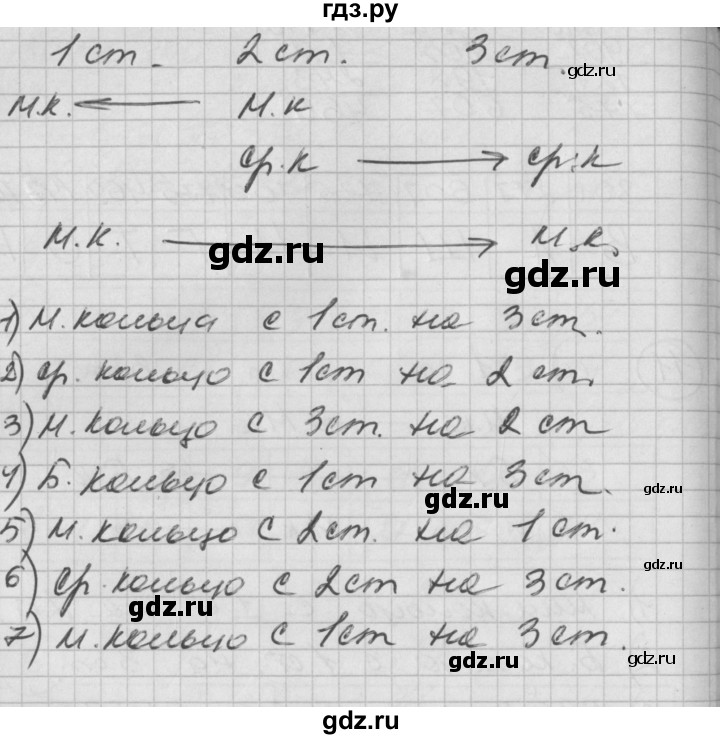 гдз.ру
1 ст. 2 ст. 3 ст.
gdz.ru
м.к. ← м.к
ср.к → ср.к
м.к. → м.к.
gdz.ru
gdz.ru
1) м. кольца с 1 ст. на 3 ст.
gdz.ru
2) ср. кольцо с 1 ст на 2 ст.
3) м. кольцо с 3 ст. на 2 ст
4) Б. кольцо с 1 ст на 3 ст.
gdz.ru
gdz.ru
5) м. кольцо с 2 ст. на 1 ст.
gdz.ru
6) ср. кольцо с 2 ст на 3 ст.
gdz.ru
7) м. кольцо с 1 ст на 3 ст.
gdz.ru
gdz.ru
gdz.ru